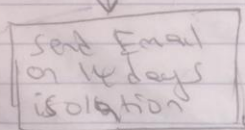 Send Email
on 14 days
isolation